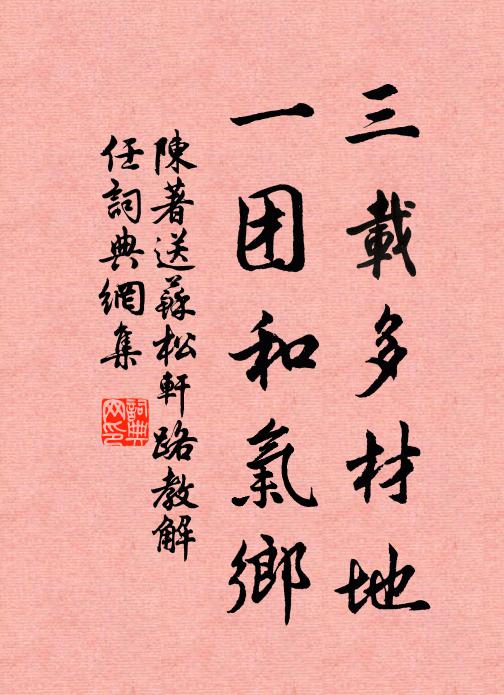 三載多材地
一团和氣鄉
陳著送蘇松軒路教解
任詞典網集
詞典
网印